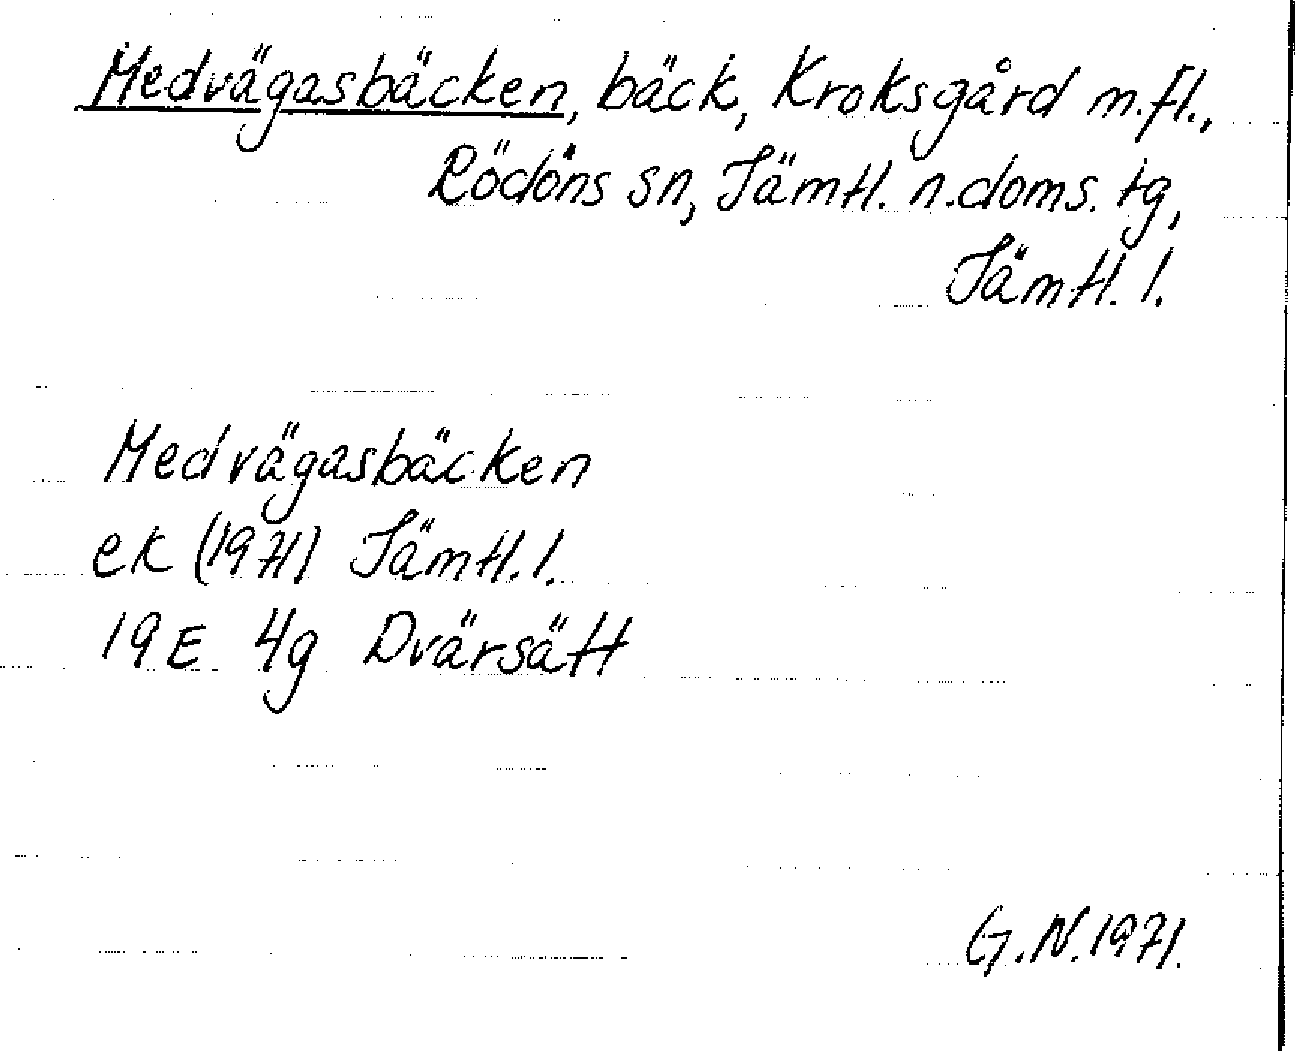 Medvägasbäcken, bäck, Kroksgård m.fl.,
Rödöns sn, Jämtl. n.doms. tg,
Jämtl. l.
Medvägasbäcken
ek (1971) Jämtl. l.
19E 4g Dvärsätt
G.N. 1971.